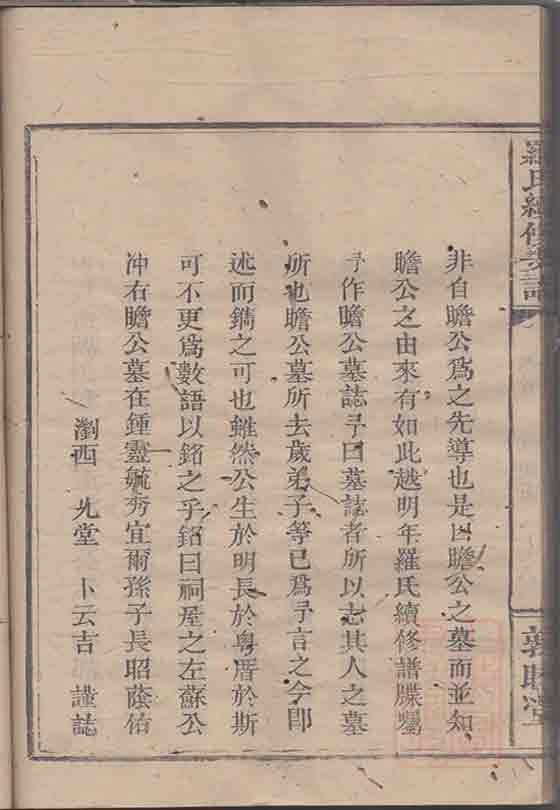 羅氏續修族譜
敦睦堂
非自瞻公爲之先導也是因瞻公之墓而並知
瞻公之由來有如此越明年羅氏續修譜牒囑
予作瞻公墓誌予曰墓誌者所以志其人之墓
所也瞻公墓所去歲弟子等已爲予言之今卽
述而鐫之可也雖然公生於明長於粤厝於斯
可不更爲數語以銘之乎銘曰祠屋之左蘇公
冲右瞻公墓在鍾靈毓秀宜爾孫子長昭蔭佑
瀏西 光堂 卜云吉 謹誌